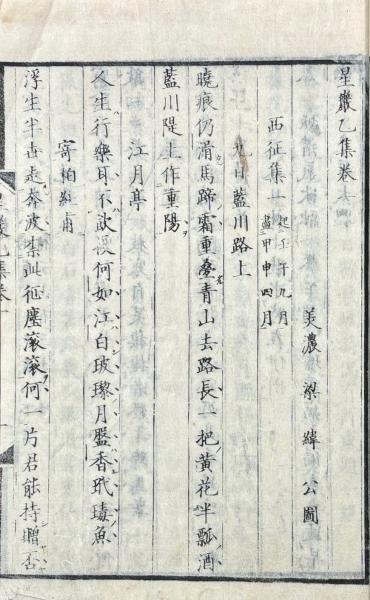 星巖乙集卷之四
美濃 梁緯 公圖
西征集 起壬午九月
盡甲申四月
九日藍川路上
曉痕仍滑馬蹄霜重疊青山去路長 把黃花半瓢酒
藍川隄上作重陽
江月亭
人生行樂耳不歡復何如江白玻瓈月盤香玳瑇魚
寄柏如甫
浮生半世走奔波 此征塵滾滾何一片君能持贈否